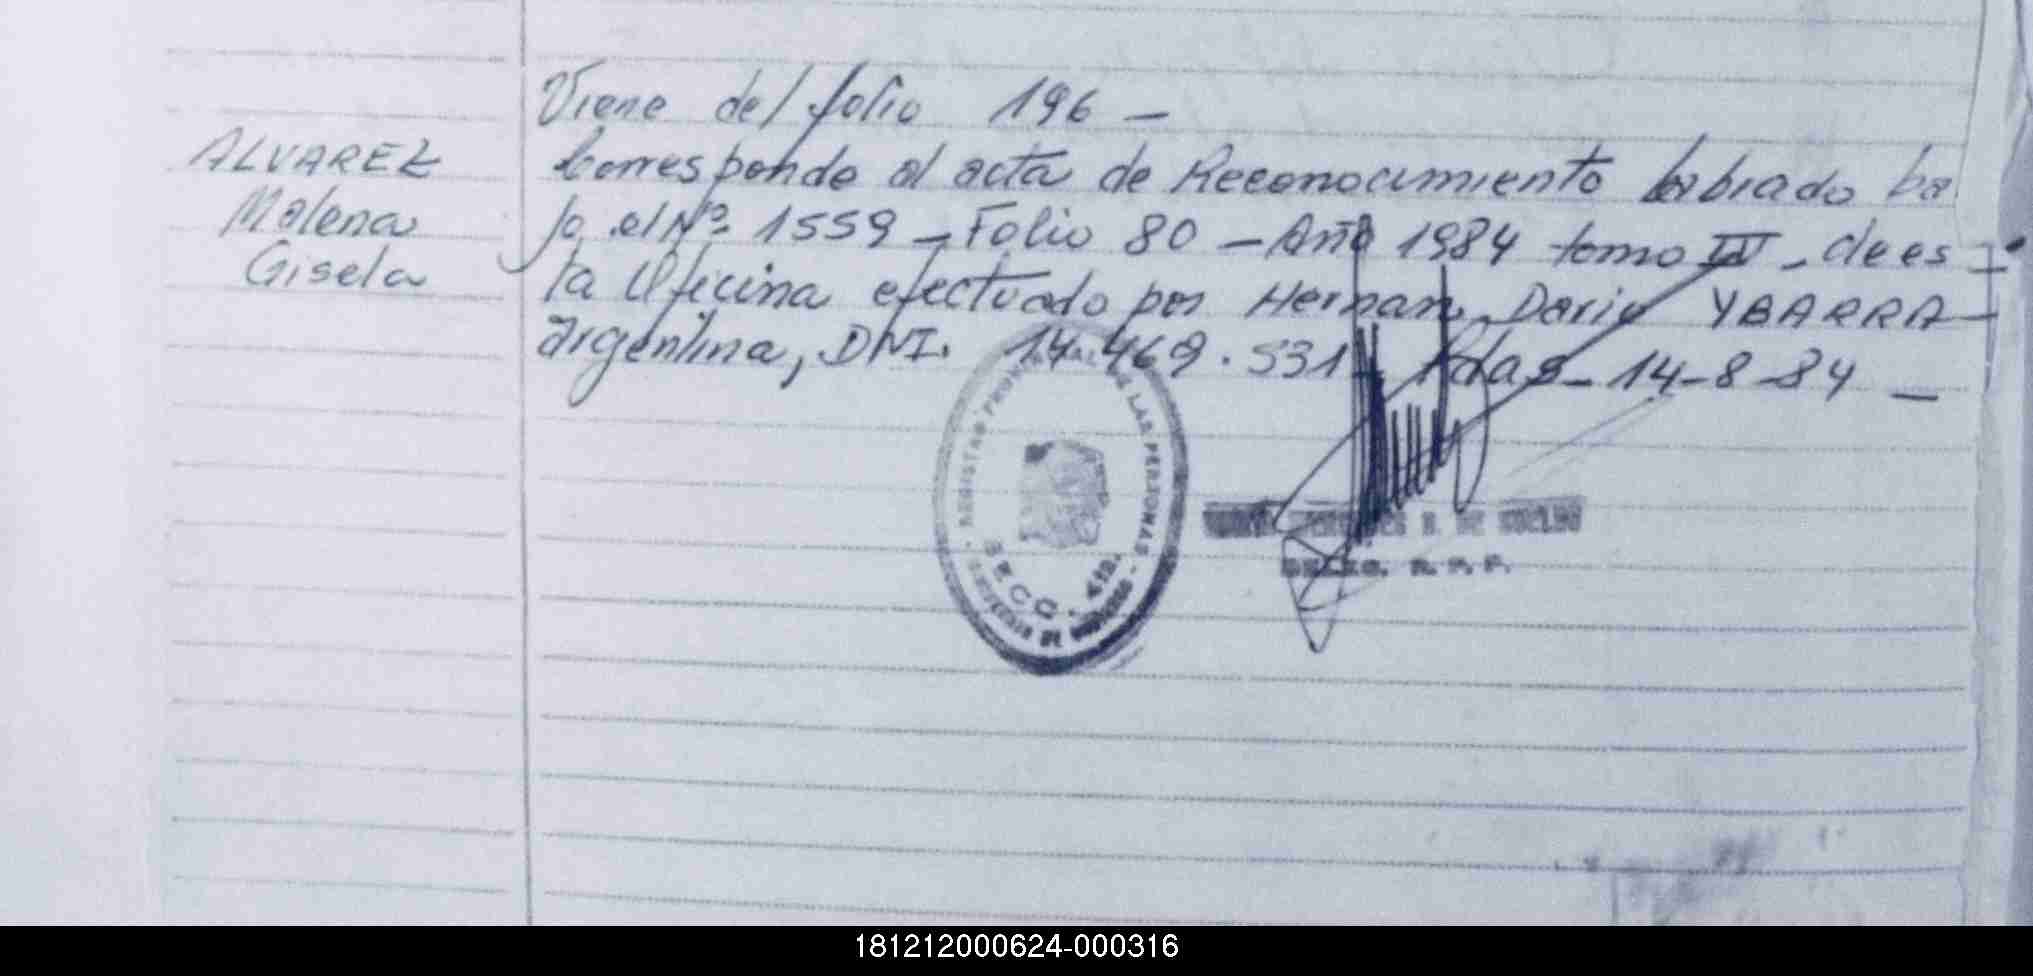 Viene del folio 196 —
ALVAREZ
Malena
Gisela
Corresponde al acta de Reconocimiento labrado ba
jo el Nº 1559 — Folio 80 — Año 1984 tomo IV - de es
ta Oficina efectuado por Hernan Dario YBARRA —
argentina, DNI. 14.469.531 — Pdas - 14-8-84 —
REGISTRO PROVINCIAL DE LAS PERSONAS
SECC. 4ta.
181212000624-000316